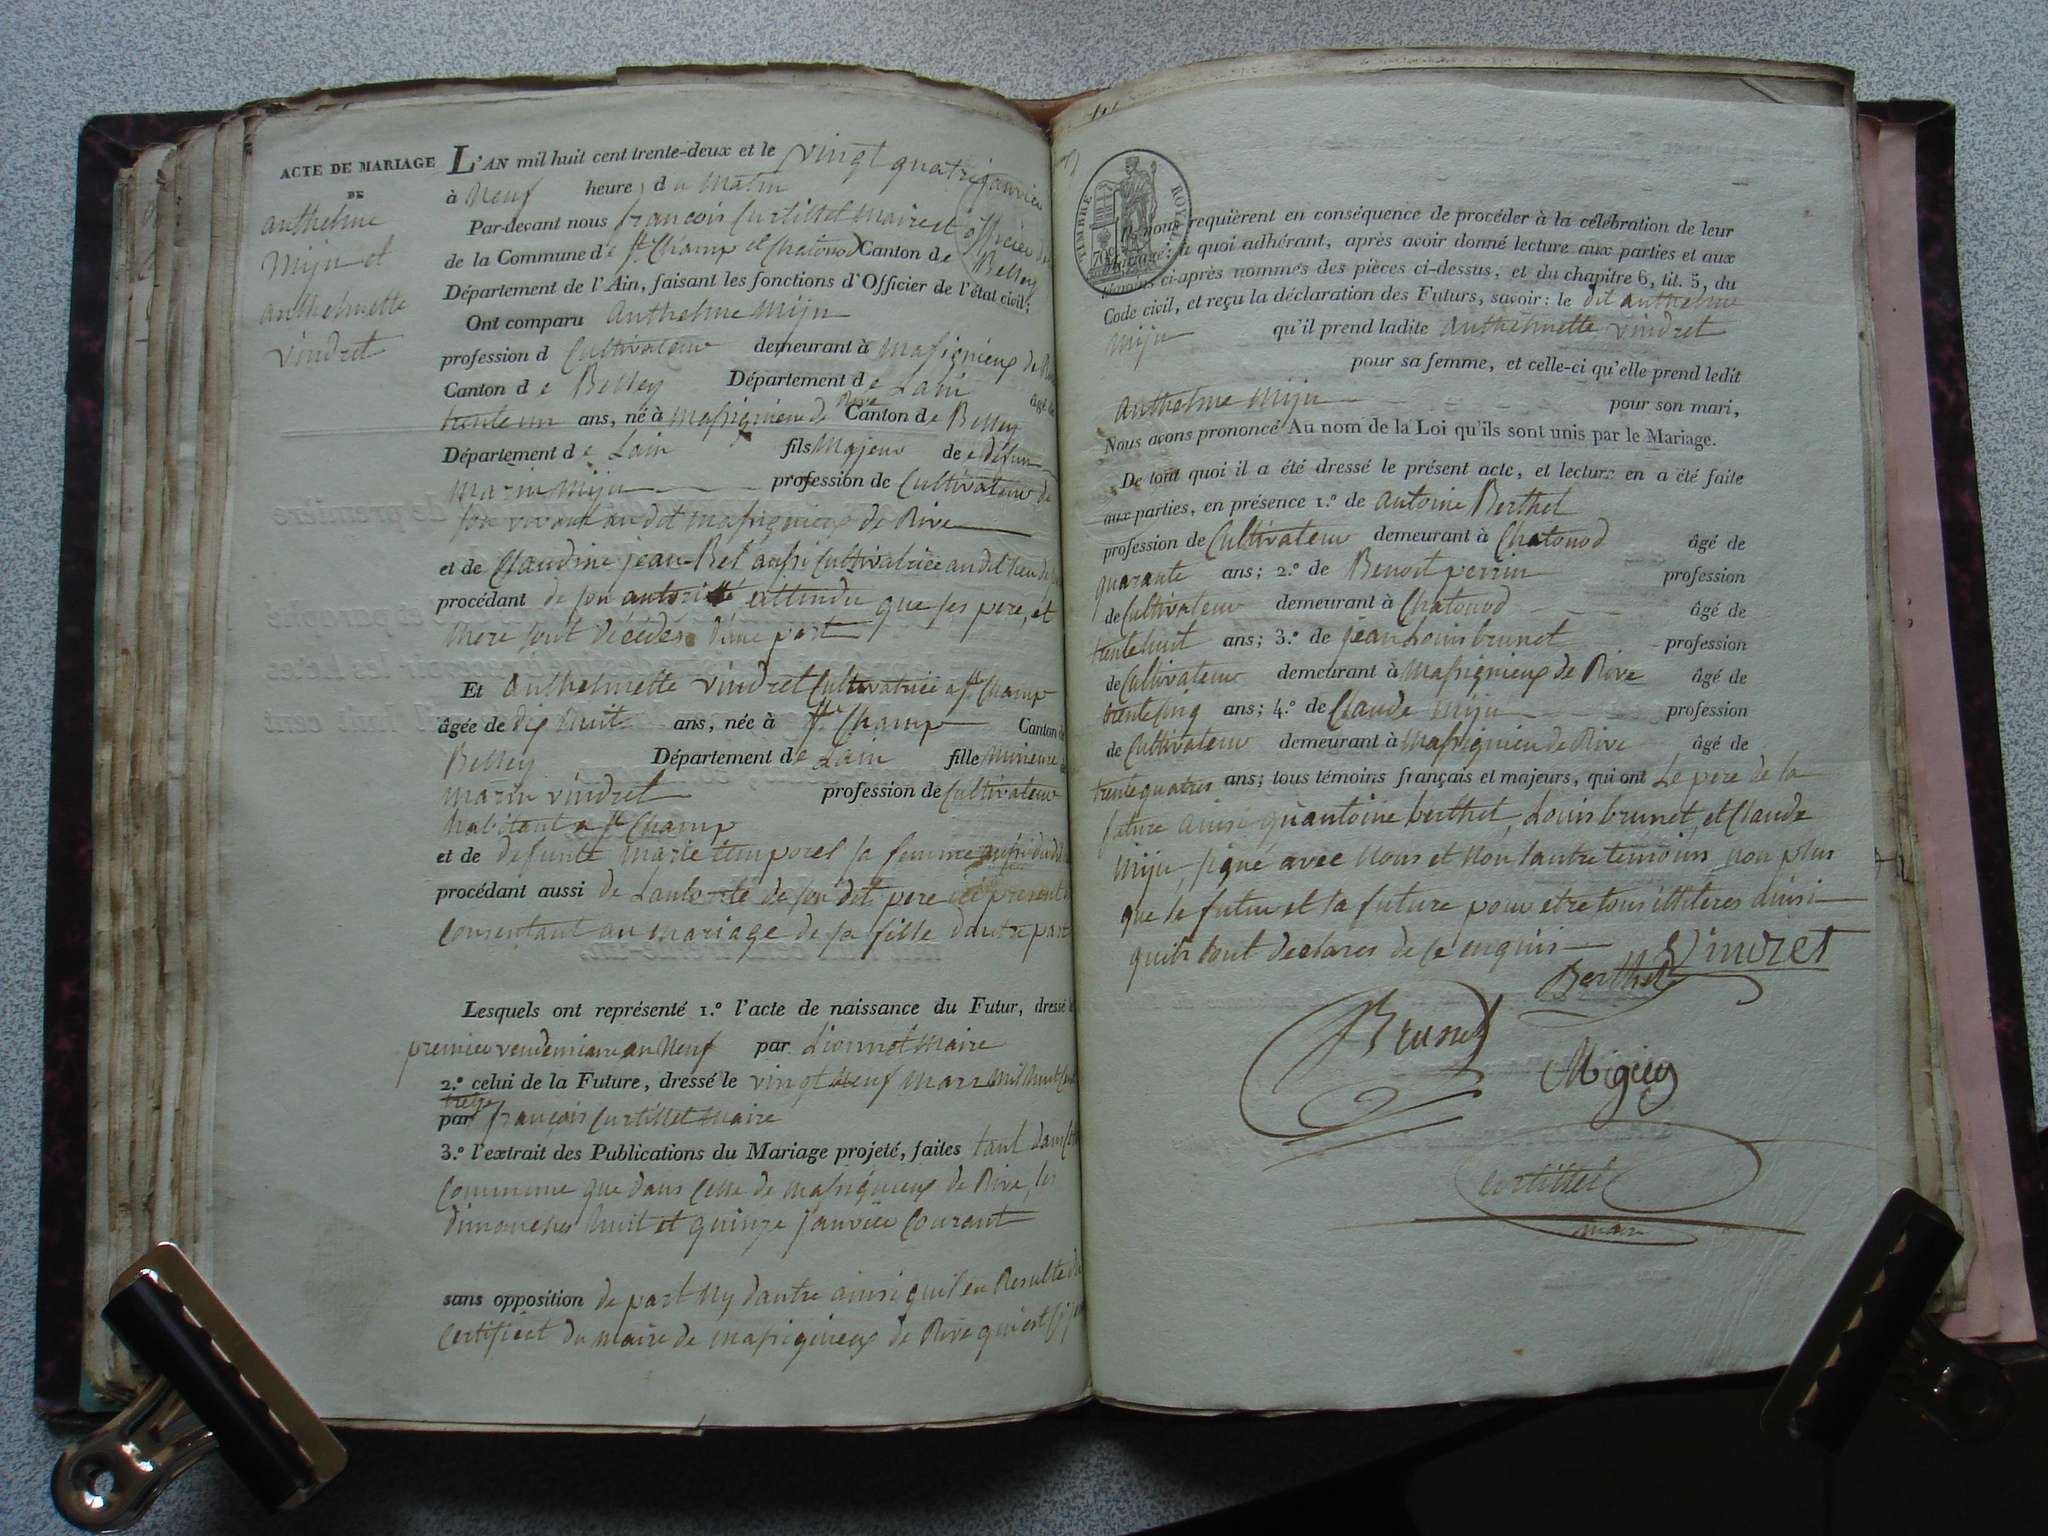 ACTE DE MARIAGE
DE
anthelme
Miju et
anthelmette
vindret
L'AN mil huit cent trente-deux et le vingt quatre janvier
à Neuf heure du matin
Par-devant nous françois Curtillet Maire et officier de
de la Commune de St. Champ et Chatonod Canton de Belley
Département de l'Ain, faisant les fonctions d'Officier de l'état civil;
Ont comparu Anthelme Miju
profession d Cultivateur demeurant à Massignieux de Rive
Canton de Belley Département de Lain âgé de
trente un ans, né à Massignieux de Rive Canton de Belley
Département de Lain fils Majeur de defun
Marin Miju profession de Cultivateur de
son vivant au dit Massignieux de Rive
et de Claudine jean-Bel aussi Cultivatrice au dit lieu
procédant de son autorité attendu que ses pere, et
mere sont décédés d'une part
Et Anthelmette vindret Cultivatrice a St Champ
âgée de dix huit ans, née à St. Champ Canton de
Belley Département de Lain fille Mineure de
marin vindret profession de Cultivateur
habitant a St Champ
et de defunte marie temporel sa femme aussi dudit
procédant aussi de Lautorité de son dit pere ici present
Consentant au mariage de sa fille dautre part
Lesquels ont représenté 1.º l'acte de naissance du Futur, dressé le
premier vendemiaire an Neuf par Lionnet Maire
2.º celui de la Future, dressé le vingt Neuf Mars Mil huit Cent
treize
par françois Curtillet Maire
3.º l'extrait des Publications du Mariage projeté, faites tant dans cette
Commune que dans Celle de Massignieux de Rive, les
dimanches huit et quinze janvier Courant
sans opposition de part Ny dautre ainsi quil en Resulte du
Certificat du maire de Massignieux de Rive qui est
TIMBRE ROYAL
70c
Ils nous requièrent en conséquence de procéder à la célébration de leur
Mariage: à quoi adhérant, après avoir donné lecture aux parties et aux
témoins ci-après nommés des pièces ci-dessus, et du chapitre 6, tit. 5, du
Code civil, et reçu la déclaration des Futurs, savoir: le dit anthelme
Miju qu'il prend ladite anthelmette vindret
pour sa femme, et celle-ci qu'elle prend ledit
anthelme Miju pour son mari,
Nous avons prononcé Au nom de la Loi qu'ils sont unis par le Mariage.
De tout quoi il a été dressé le présent acte, et lecture en a été faite
aux parties, en présence 1.º de antoine Berthet
profession de Cultivateur demeurant à Chatonod âgé de
quarante ans; 2.º de Benoit perrin profession
de Cultivateur demeurant à Chatonod âgé de
trente huit ans; 3.º de jean Louis brunet profession
de Cultivateur demeurant à Massignieux de Rive âgé de
trente Cinq ans; 4.º de Claude Miju profession
de Cultivateur demeurant à Massignieu de Rive âgé de
trente quatres ans; tous témoins français et majeurs, qui ont Le pere de la
future ainsi quantoine berthet, Louis brunet, et Claude
Miju, signé avec Nous et Non lautre temoins non plus
que le futur et la future pour etre tous illiteres ainsi
quils lont declarés de ce enquis
Vindret
Berthet
Brunet
Migieu
Curtillet
maire